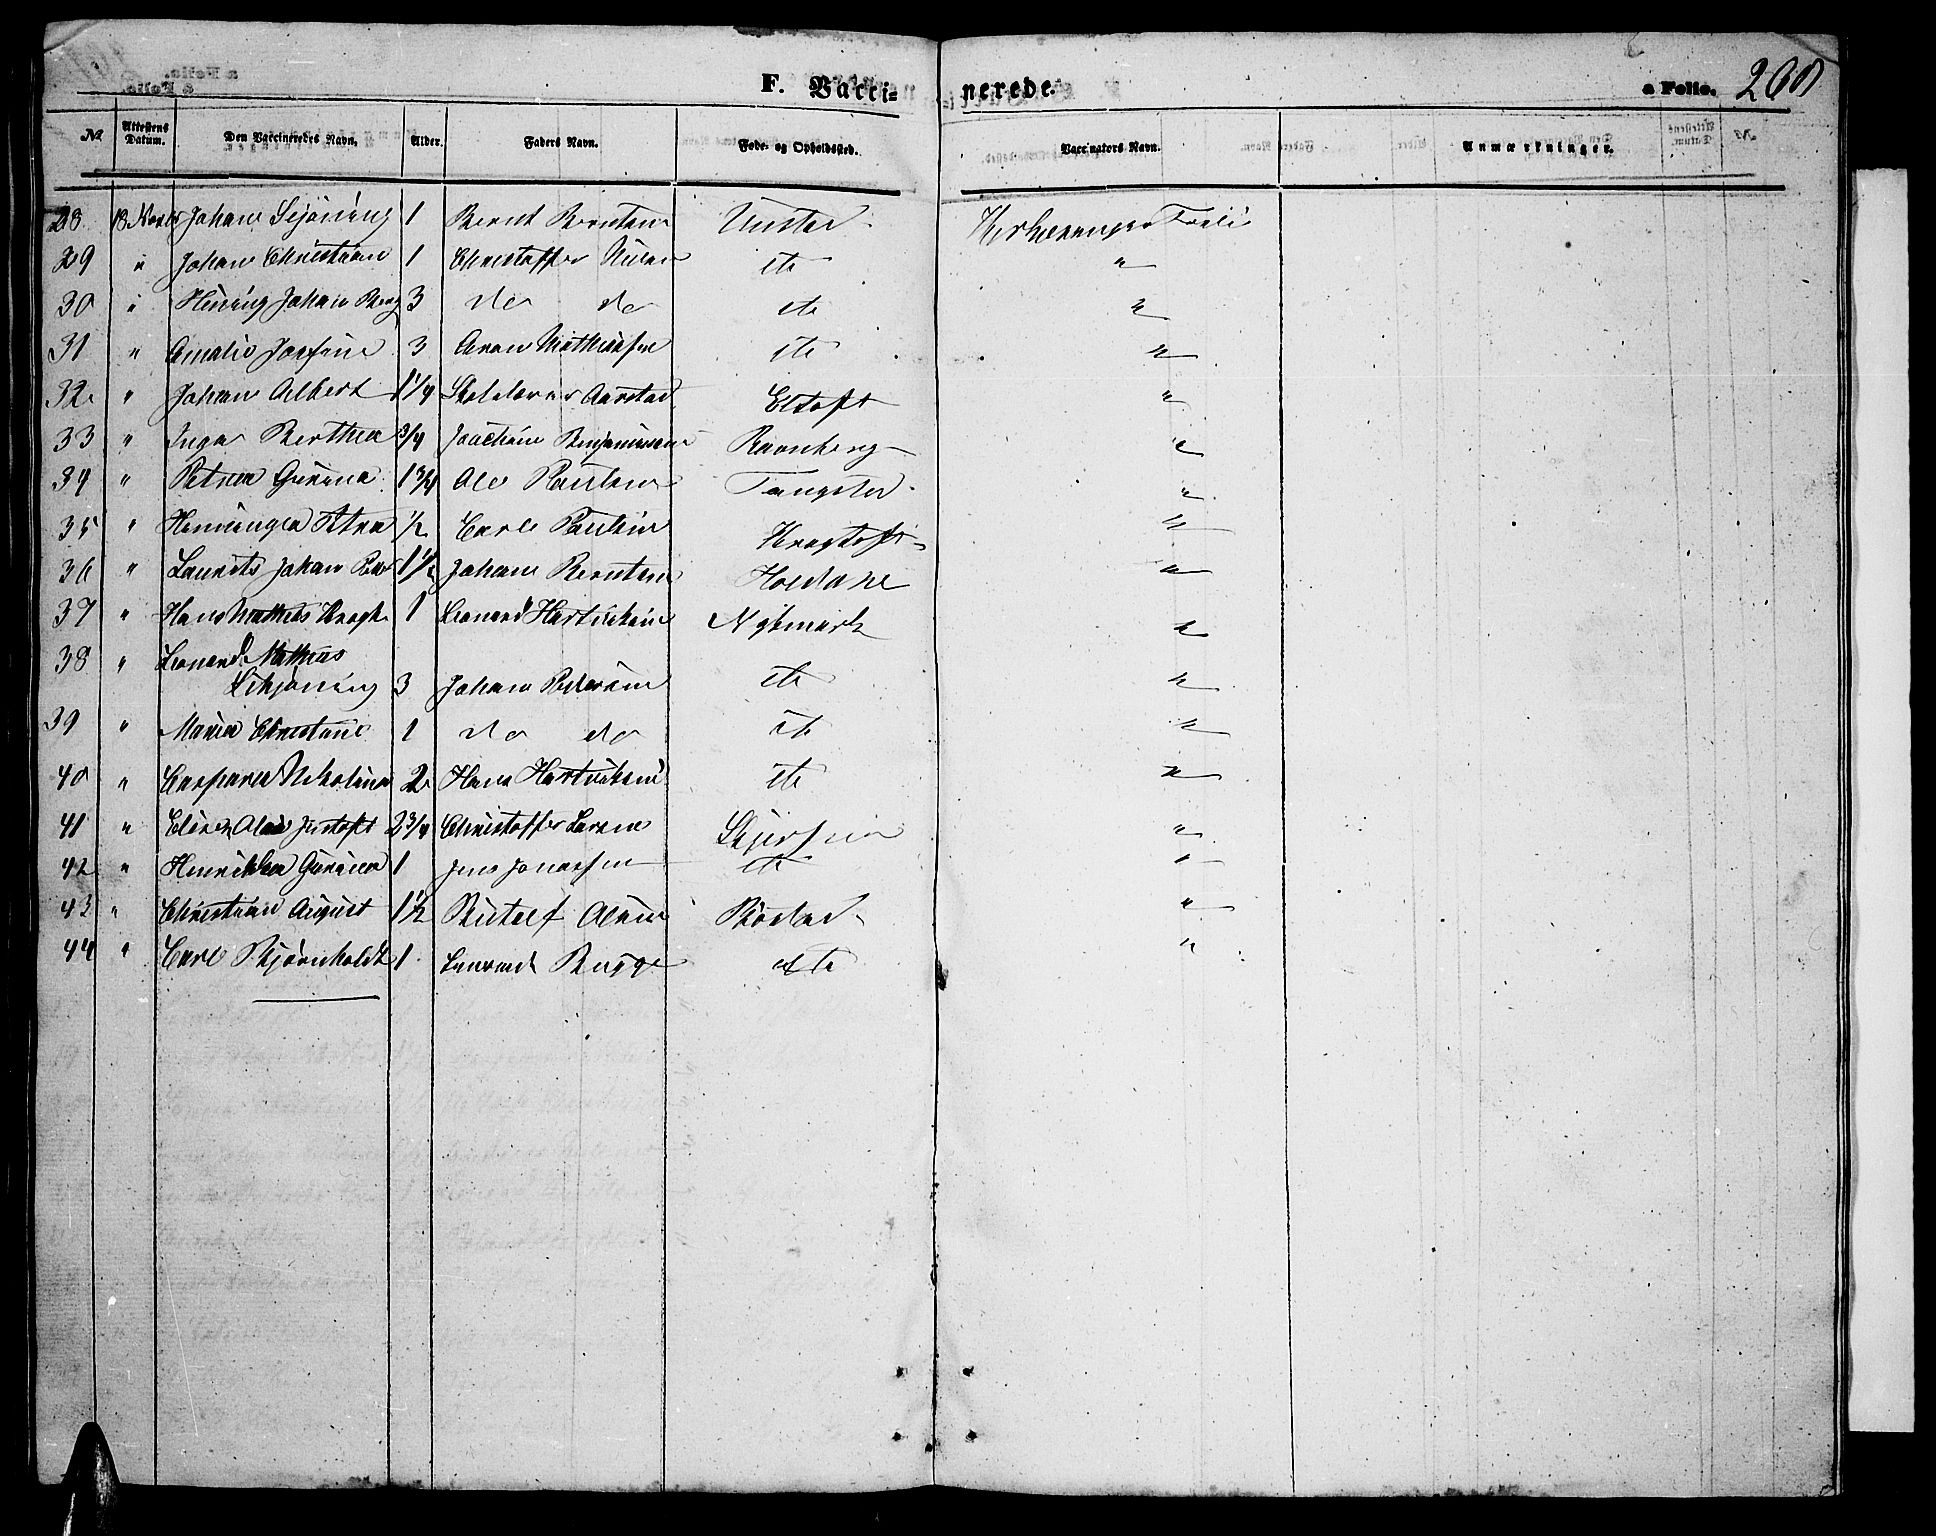 F. Vacci= nerede. a Folio. 260
№ Attestens Datum. Den Vaccineredes Navn. Alder. Faders Navn. Føde- og Opholdssted. Vaccinators Navn. Anmærkninger.
28 18 Novbr Johan Sejöning 1 Bernt Berntsen Unstad
29 " Johan Christian 1 Christoffer Nilsen dto "
30 " Hening Johan Berg 3 do do dto "
31 " Amalie Josfine 3 Aron Mathissen dto "
32 " Johan Albert 1 1/4 Skolelærer Aarstad Eltoft "
33 " Inga Berthea 3/4 Joachim Benjaminsen Ravnberg "
34 " Petrea Gurina 1 3/4 Ole Paulsen Tangstad "
35 " Henninga Petrea 1/2 Carl Paulsen Kragtoft "
36 " Laurits Johan Peder 1 1/2 Johan Berntsen Holdane "
37 " Hans Mathias Kragh 1 Leonard Hartviksen Nykmark "
38 " Leonard Mathias
Schjöning 3 Johan Pedersen dto "
39 " Maria Christine 1 do do dto "
40 " Caspara Nikolina 2 Hans Hartviksen dto "
41 " Elisa Justoft 2 3/4 Christoffer Larsen "
42 " Henrikka Gurina 1 Jens Jonassen dto "
43 " Christian August 1 1/2 Rudolf Olsen Bostad "
44 " Carl Bjørnholdt 1 Leonard Bugge dto "